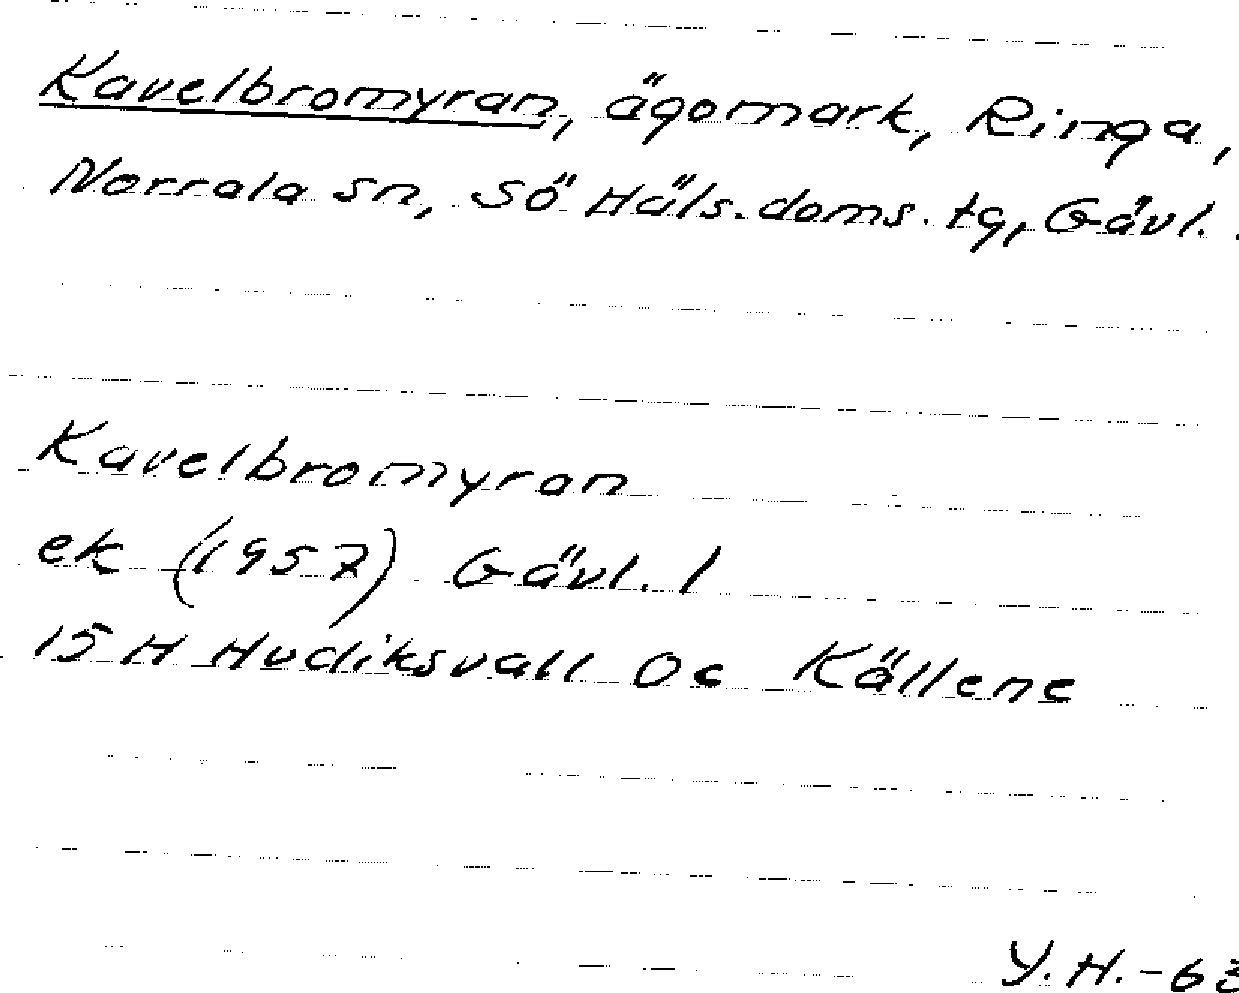 Kavelbromyran, ägomark, Ringa,
Norrala sn, Sö Häls. doms. tg, Gävl. .
Kavelbromyran
ek (1957) Gävl. l
15 H Hudiksvall 0c Källene
Y.H.-63